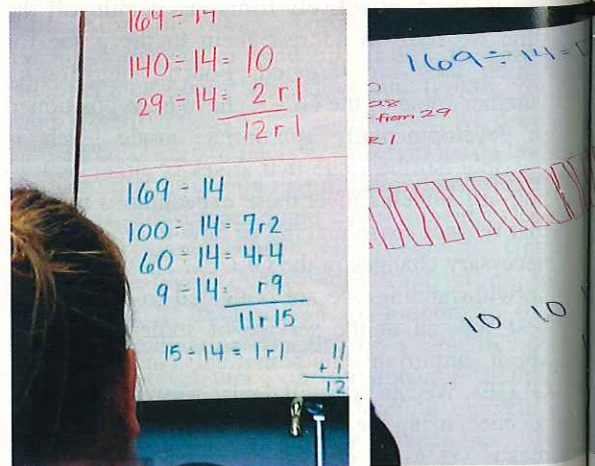 169 ÷ 14
140 ÷ 14 = 10
29 ÷ 14 = 2 r1
12 r1
169 ÷ 14
100 ÷ 14 = 7r2
60 ÷ 14 = 4r4
9 ÷ 14 = r9
11r 15
15 ÷ 14 = 1r1
11
+ 1
12
169 ÷ 14 =
28
from 29
R 1
10 10